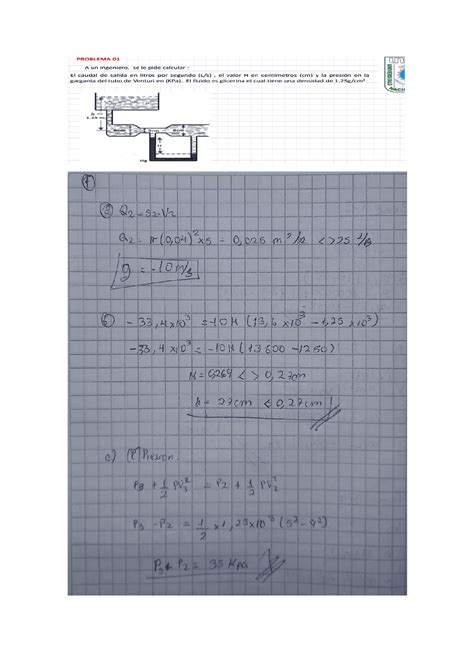 PROBLEMA 01
A un ingeniero, se le pide calcular :
El caudal de salida en litros por segundo (L/s) , el valor H en centímetros (cm) y la presión en la
garganta del tubo de Venturi en (KPa). El fluido m glicerina el cual tiene una densidad de 1.25g/cm³
8cm
8cm
H
Hg
1
Q2 = S2.V2
Q2 = π(0,04)²x5 = 0,025 m³/s <>25 l/s
g = -10 m/s
b
-33,4x10³ = -10H (13,6 x10³ - 1,25 x10³)
-33,4x10³ = -10H (13600 - 1250)
<> 0,27cm
h = 27cm 0,27cm
c) Presion.
P3 + 1/2 PV3² = P2 + 1/2 PV2²
P3 - P2 = 1/2 x 1,25x10³ (5² -
P2 = 35 Kpa